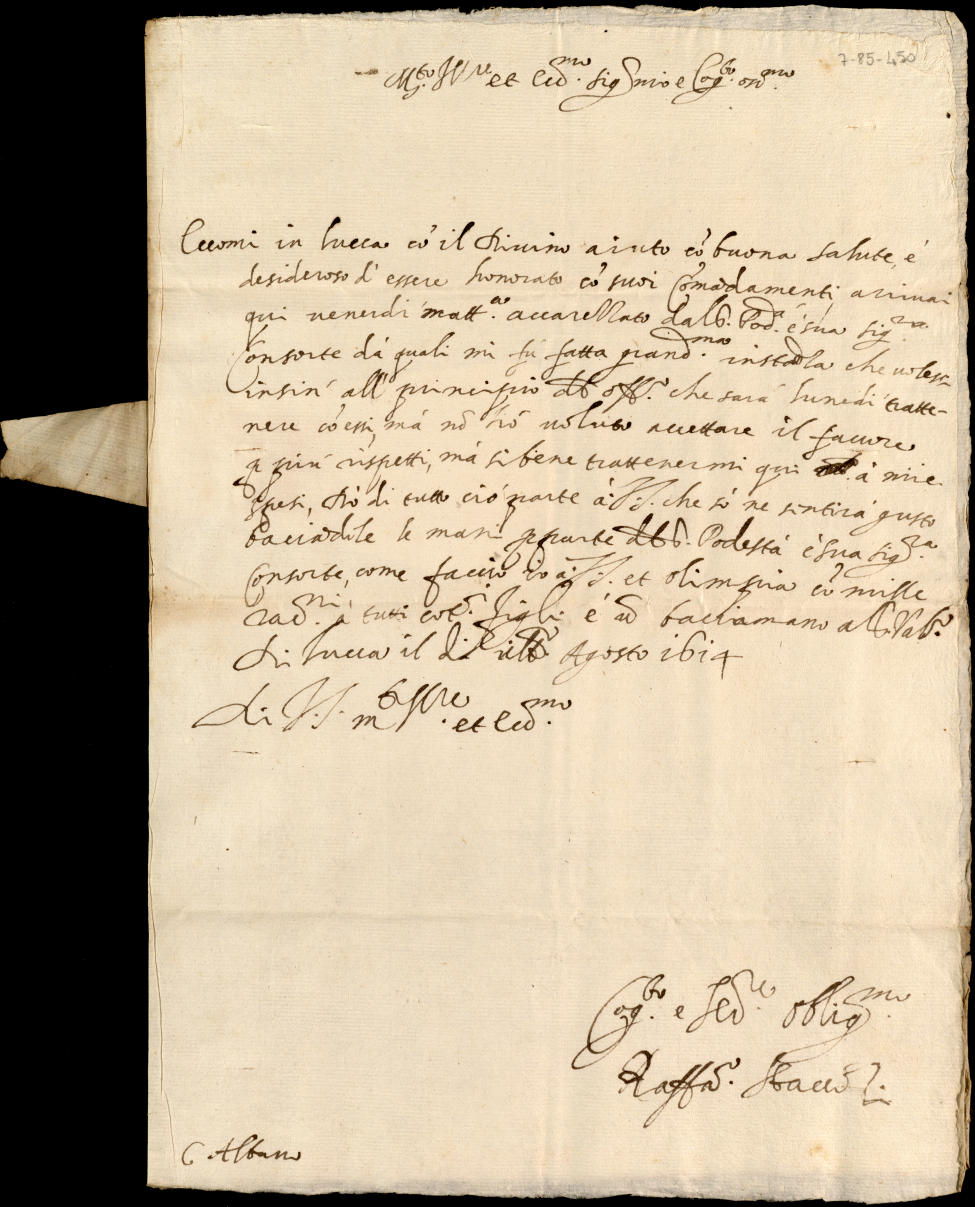 7-85-450
M.to Ill.re et Ecc.mo sig.r mio e Cog.to oss.mo
Eccomi in Lucca cō il Diuino aiuto cō buona salute, é
desideroso d'essere honorato cō suoi Comādamenti, arriuai
qui uenerdi matt.a accarezzato dal S. Pod.a é sua sig.ra
Consorte dá quali mi fú fatta grand.ma instāza che uolessi
insin' all' principio dell' off.o che sará lunedi tratte-
nere cō essi, má nō hó uoluto accettare il fauore
p piú rispetti, má si bene trattenermi qui á mie
spesi, dó di tutto ció parte á V.S. che só ne sentirá gusto
baciādole le mani p parte del S. Podestá é sua sig.ra
Consorte, come faccio io á V.S. et Olimpia cō mille
rac.ni á tutti cot.i figli é ū bacciamano al S.
Di Lucca il dí ult.o Agosto 1614
di V.S. m.to Ill.re et Ecc.mo
Cog.to e Ser.re oblig.mo
Raffa.o
S Albano